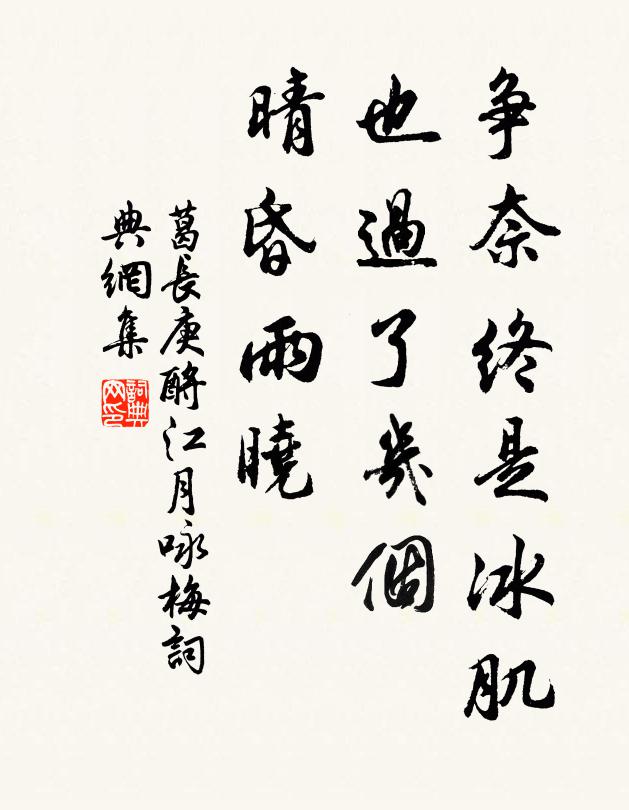 爭奈終是冰肌
也過了幾個
晴昏雨曉
葛長庚酹江月咏梅詞
典網集
詞典网印